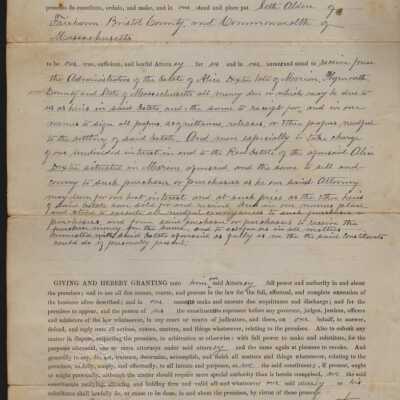 presents do constitute, ordain, and make, and in our stead and place put Seth Alden of
Fairhaven Bristol County, and Commonwealth of
Massachusetts
to be our true, sufficient, and lawful Attorney for us and in our name and stead to receive from
the Administrator of the Estate of Alice Dexter late of Marion, Plymouth
County and State of Massachusetts all money due or which may be due to
us as heirs in said Estate, and the same to receipt for, and in our
names to sign all papers, acquittances, releases, or other papers needful
to the settling of said Estate. And more especially to take charge
of our undivided interest in and to the Real Estate of the aforesaid Alice
Dexter situated in Marion aforesaid and the same to sell and
convey to such purchaser or purchasers as he our said Attorney
may deem for our best interest and at such price as the other heirs
of said Estate have sold for and
and also to execute all needful conveyances to such purchaser or
purchasers, and from said purchaser or purchasers to receive the
purchase money for the same, and to act for us in all matters
connected with said Estate aforesaid as fully as we the said constituents
could do if personally present.
GIVING AND HEREBY GRANTING unto him our said Attorney full power and authority in and about
the premises; and to use all due means, course, and process in the law for the full, effectual, and complete execution of
the business afore described; and in our names to make and execute due acquittance and discharge; and for the
premises to appear, and the person of us the constituents represent before any governor, judges, justices, officers
and ministers of the law whatsoever, in any court or courts of judicature, and there, on our behalf, to answer,
defend, and reply unto all actions, causes, matters, and things whatsoever, relating to the premises. Also to submit any
matter in dispute, respecting the premises, to arbitration or otherwise; with full power to make and substitute, for the
purposes aforesaid, one or more attorneys under said attorney and the same again at pleasure to revoke. And
generally to say, do, act, transact, determine, accomplish, and finish all matters and things whatsoever, relating to the
premises, as fully, amply, and effectually, to all intents and purposes, as we the said constituents, if present, ought
or might personally, although the matter should require more special authority than is herein comprised, we the said
constituents ratifying, allowing, and holding firm and valid all and whatsoever our said attorney or his
substitute shall lawfully do, or cause to be done, in and about the premises, by virtue of these presents.